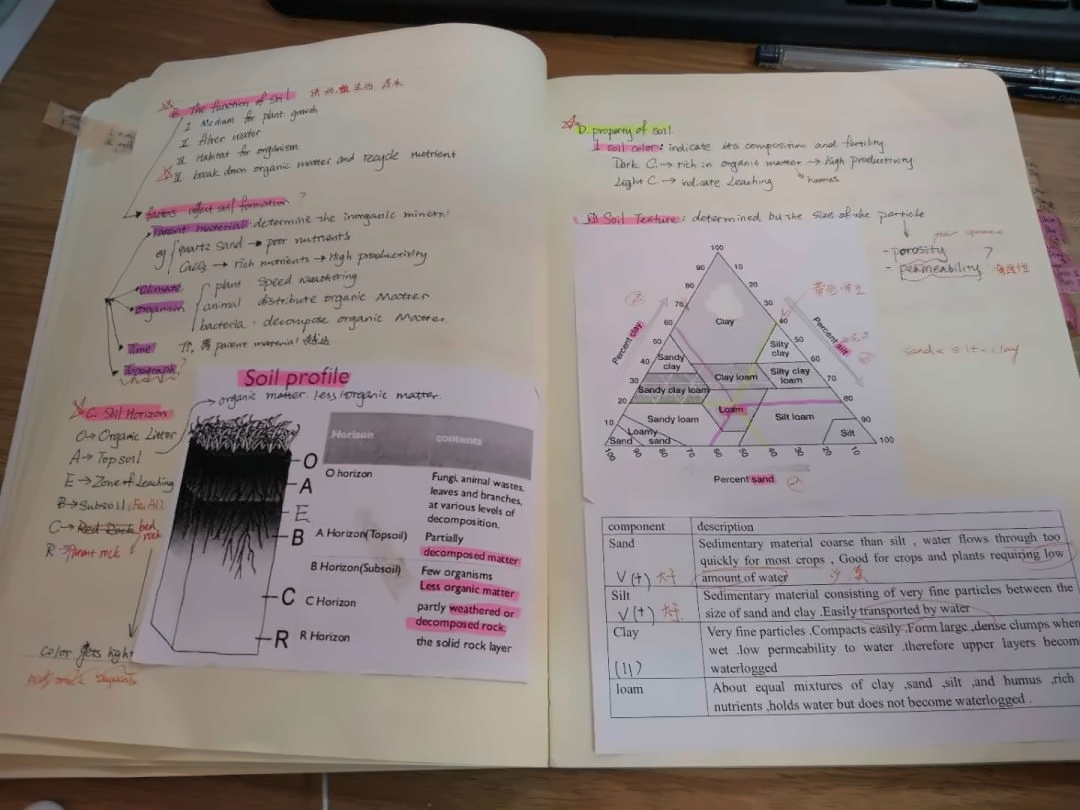 B. The function of soil
I Medium for plant growth
II Filter water
III Habitat for organism
IV break down organic matter and recycle nutrient
factors affect soil formation ?
Parent material determine the inorganic mineral
eg quartz sand → poor nutrients
CaCO₃ → rich nutrients → High productivity
Climate
organism
plant speed weathering
animal distribute organic Matter
bacteria . decompose organic Matter
Time parent material
Topograph ?
C. Soil Horizon
O → Organic Litter
A → Topsoil
E → Zone of Leaching
B → Subsoil (Fe, Al)
C → Red Rock bed rock
R → Parent rock
color gets light
Soil profile
organic matter. less inorganic matter.
O
A
E
B
C
R
Horizon contents
O horizon Fungi, animal wastes,
leaves and branches,
at various levels of
decomposition.
A Horizon(Topsoil) Partially
decomposed matter
B Horizon(Subsoil) Few organisms
Less organic matter
C Horizon partly weathered or
decomposed rock.
R Horizon the solid rock layer
D. property of soil
I soil color: indicate its composition and fertility
Dark C. → rich in organic matter → high productivity
humus
Light C → indicate Leaching
II Soil Texture: determined by the size of the particle
- porosity ?
- permeability
sand < silt < clay
Percent clay
Percent silt
Percent sand
100
90 10
80 20
30
60 40
50 50
40 60
30 70
20 80
10 90
100
100 90 80 70 60 50 40 30 20 10
Clay
Silty
clay
Sandy
clay
Clay loam
Silty clay
loam
Sandy clay loam
Loam
Sandy loam
Silt loam
Loamy
sand
Sand
Silt
component description
Sand Sedimentary material coarse than silt , water flows through too
quickly for most crops , Good for crops and plants requiring low
V(+) amount of water
Silt Sedimentary material consisting of very fine particles between the
V(+) size of sand and clay .Easily transported by water
Clay Very fine particles .Compacts easily .Form large ,dense clumps when
wet .low permeability to water .therefore upper layers become
waterlogged
loam About equal mixtures of clay ,sand ,silt ,and humus ,rich
nutrients ,holds water but does not become waterlogged .